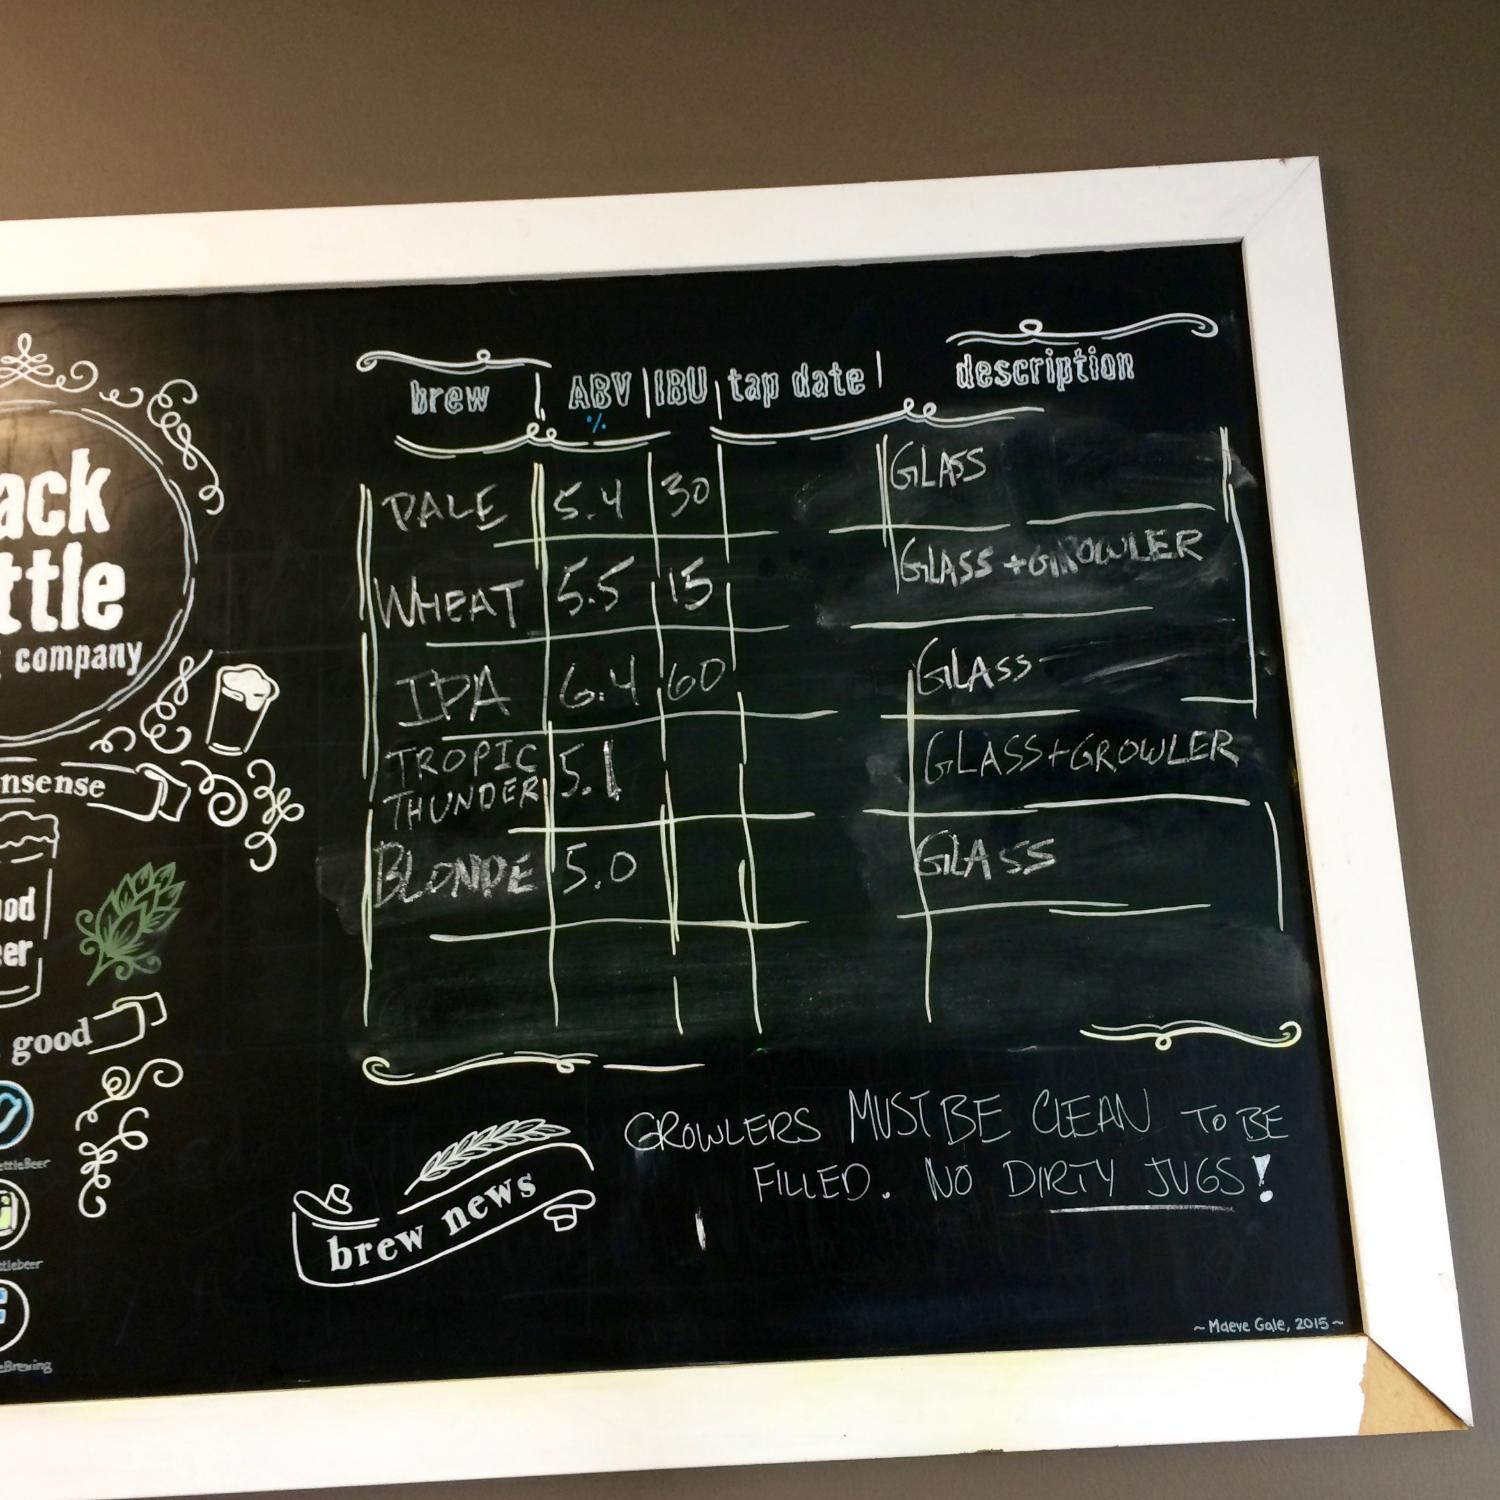 ack
ttle
company
nsense
ood
eer
good
ettleBeer
ttlebeer
eBrewing
brew ABV IBU tap date description
%
PALE 5.4 30 GLASS
WHEAT 5.5 15 GLASS + GROWLER
IPA 6.4 60 GLASS
TROPIC
THUNDER 5.1 GLASS + GROWLER
BLONDE 5.0 GLASS
brew news
GROWLERS MUST BE CLEAN TO BE
FILLED. NO DIRTY JUGS!
~ Maeve Gale, 2015 ~